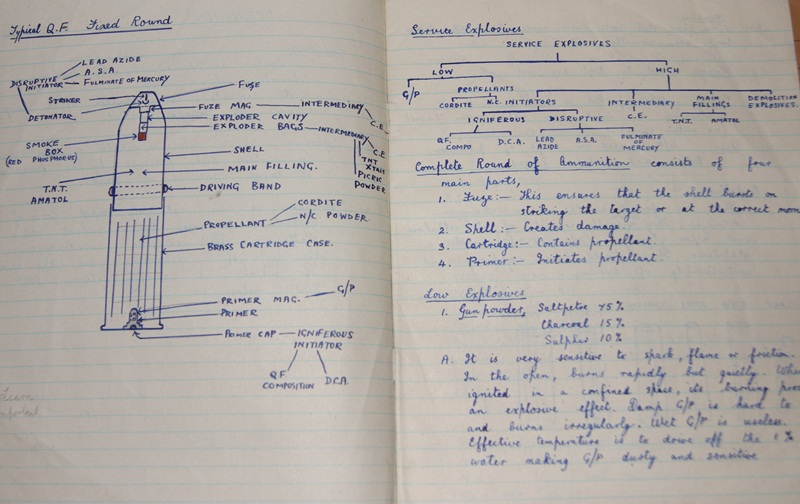 Typical Q.F. Fixed Round
LEAD AZIDE
DISRUPTIVE INITIATOR
A.S.A.
FULMINATE OF MERCURY
STRIKER
DETONATOR
SMOKE BOX
(RED PHOSPHORUS)
T.N.T.
AMATOL
FUSE
FUZE MAG — INTERMEDIARY
C.E.
EXPLODER CAVITY
EXPLODER BAGS — INTERMEDIARY
C.E.
TNT
XTALS
PICRIC
POWDER
SHELL
MAIN FILLING.
DRIVING BAND
PROPELLANT
CORDITE
N/C POWDER.
BRASS CARTRIDGE CASE.
PRIMER MAG. — G/P
PRIMER
PRIMER CAP — IGNIFEROUS
INITIATOR
Q.F.
COMPOSITION
D.C.A.
Learn
Service Explosives
SERVICE EXPLOSIVES
LOW
HIGH
G/P
PROPELLANTS
CORDITE
N.C.
INITIATORS
INTERMEDIARY
MAIN FILLINGS
DEMOLITION EXPLOSIVES.
IGNIFEROUS
DISRUPTIVE
C.E.
T.N.T.
AMATOL
Q.F. COMPO
D.C.A.
LEAD AZIDE
A.S.A.
FULMINATE OF MERCURY
Complete Round of Ammunition consists of four
main parts,
1. Fuze:— This ensures that the shell bursts on
striking the target or at the correct mom
2. Shell:— Creates damage.
3. Cartridge:— Contains propellant.
4. Primer:— Initiates propellant.
Low Explosives
1. Gunpowder, Saltpetre 75%
Charcoal 15%
Sulpher 10%
A. It is very sensitive to spark, flame or friction.
In the open, burns rapidly but quietly. Whe
ignited in a confined space, its burning pro
an explosive effect. Damp G/P is hard to
and burns irregularly. Wet G/P is useless.
Effective temperature is to drive off the 1%
water making G/P dusty and sensitive